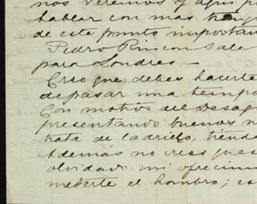 nos veremos y aquí p
hablar con mas
de este punto importan
Pedro Rincon Sale
para Londres —
Creo que, debes hacerte
de pasar una tempo
Con motivo del Desag
presentando buenos n
trata de ladrillo, tienda
Además no creas que
olvidado mi ofrecim
meterte el hombro; es